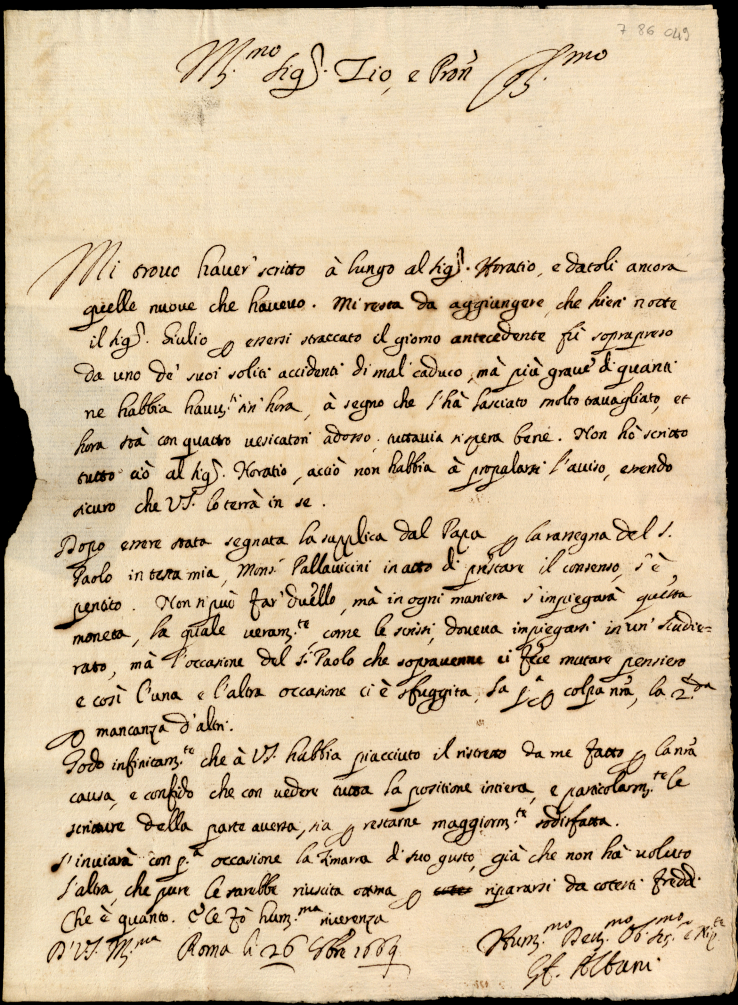 7 86 049
Ill.mo Sig.r Zio, e Pron Ill.mo
Mi trovo haver' scritto à lungo al Sig.r Horatio, e datoli ancora
quelle nuove che havevo. Mi resta da aggiungere, che hieri notte
il Sig.r Giulio ꝑ essersi straccato il giorno antecedente fù soprapreso
da uno de' suoi soliti accidenti di mal' caduco, mà più grave di quanti
ne habbia havuti sin' hora, à segno che l'hà lasciato molto travagliato, et
hora stà con quattro vesicatori adosso, tuttavia si spera bene. Non hò scritto
tutto ciò al Sig.r Horatio, acciò non habbia à propalarsi l'aviso, essendo
sicuro che VS. lo terrà in se.
Dopo essere stata segnata la supplica dal Papa ꝑ la rassegna del S.
Paolo in testa mia, Mons.r Pallavicini in atto di prestare il consenso, s'è
pentito. Non si può far' duello, mà in ogni maniera s'impiegarà questa
moneta, la quale veram.te, come le scrissi, doveva impiegarsi in un' Scudie=
rato, mà l'occasione del S. Paolo che sopravenne ci fece mutare pensiero
e così l'una e l'altra occasione ci è sfuggita, la p.a ꝑ colpa nrã, la 2.da
ꝑ mancanza d'altri.
Godo infinitam.te che à VS. habbia piacciuto il ristretto da me fatto ꝑ la nrã
causa, e confido che con vedere tutta la positione intiera, e particolarm.te le
scritture della parte aversa, sia ꝑ restarne maggiorm.te sodisfatta.
S'inviarà con p.a occasione la Zimarra di suo gusto, già che non hà voluto
l'altra, che pure le sarebbe riuscita ottima ꝑ ripararsi da cotesti freddi.
Che è quanto. E le fò hum.ma riverenza
D'VS. Ill.ma Roma li 26 Xbre 1669
Hum.mo Dev.mo Ob. Ser.e e Nip.te
Gf. Albani